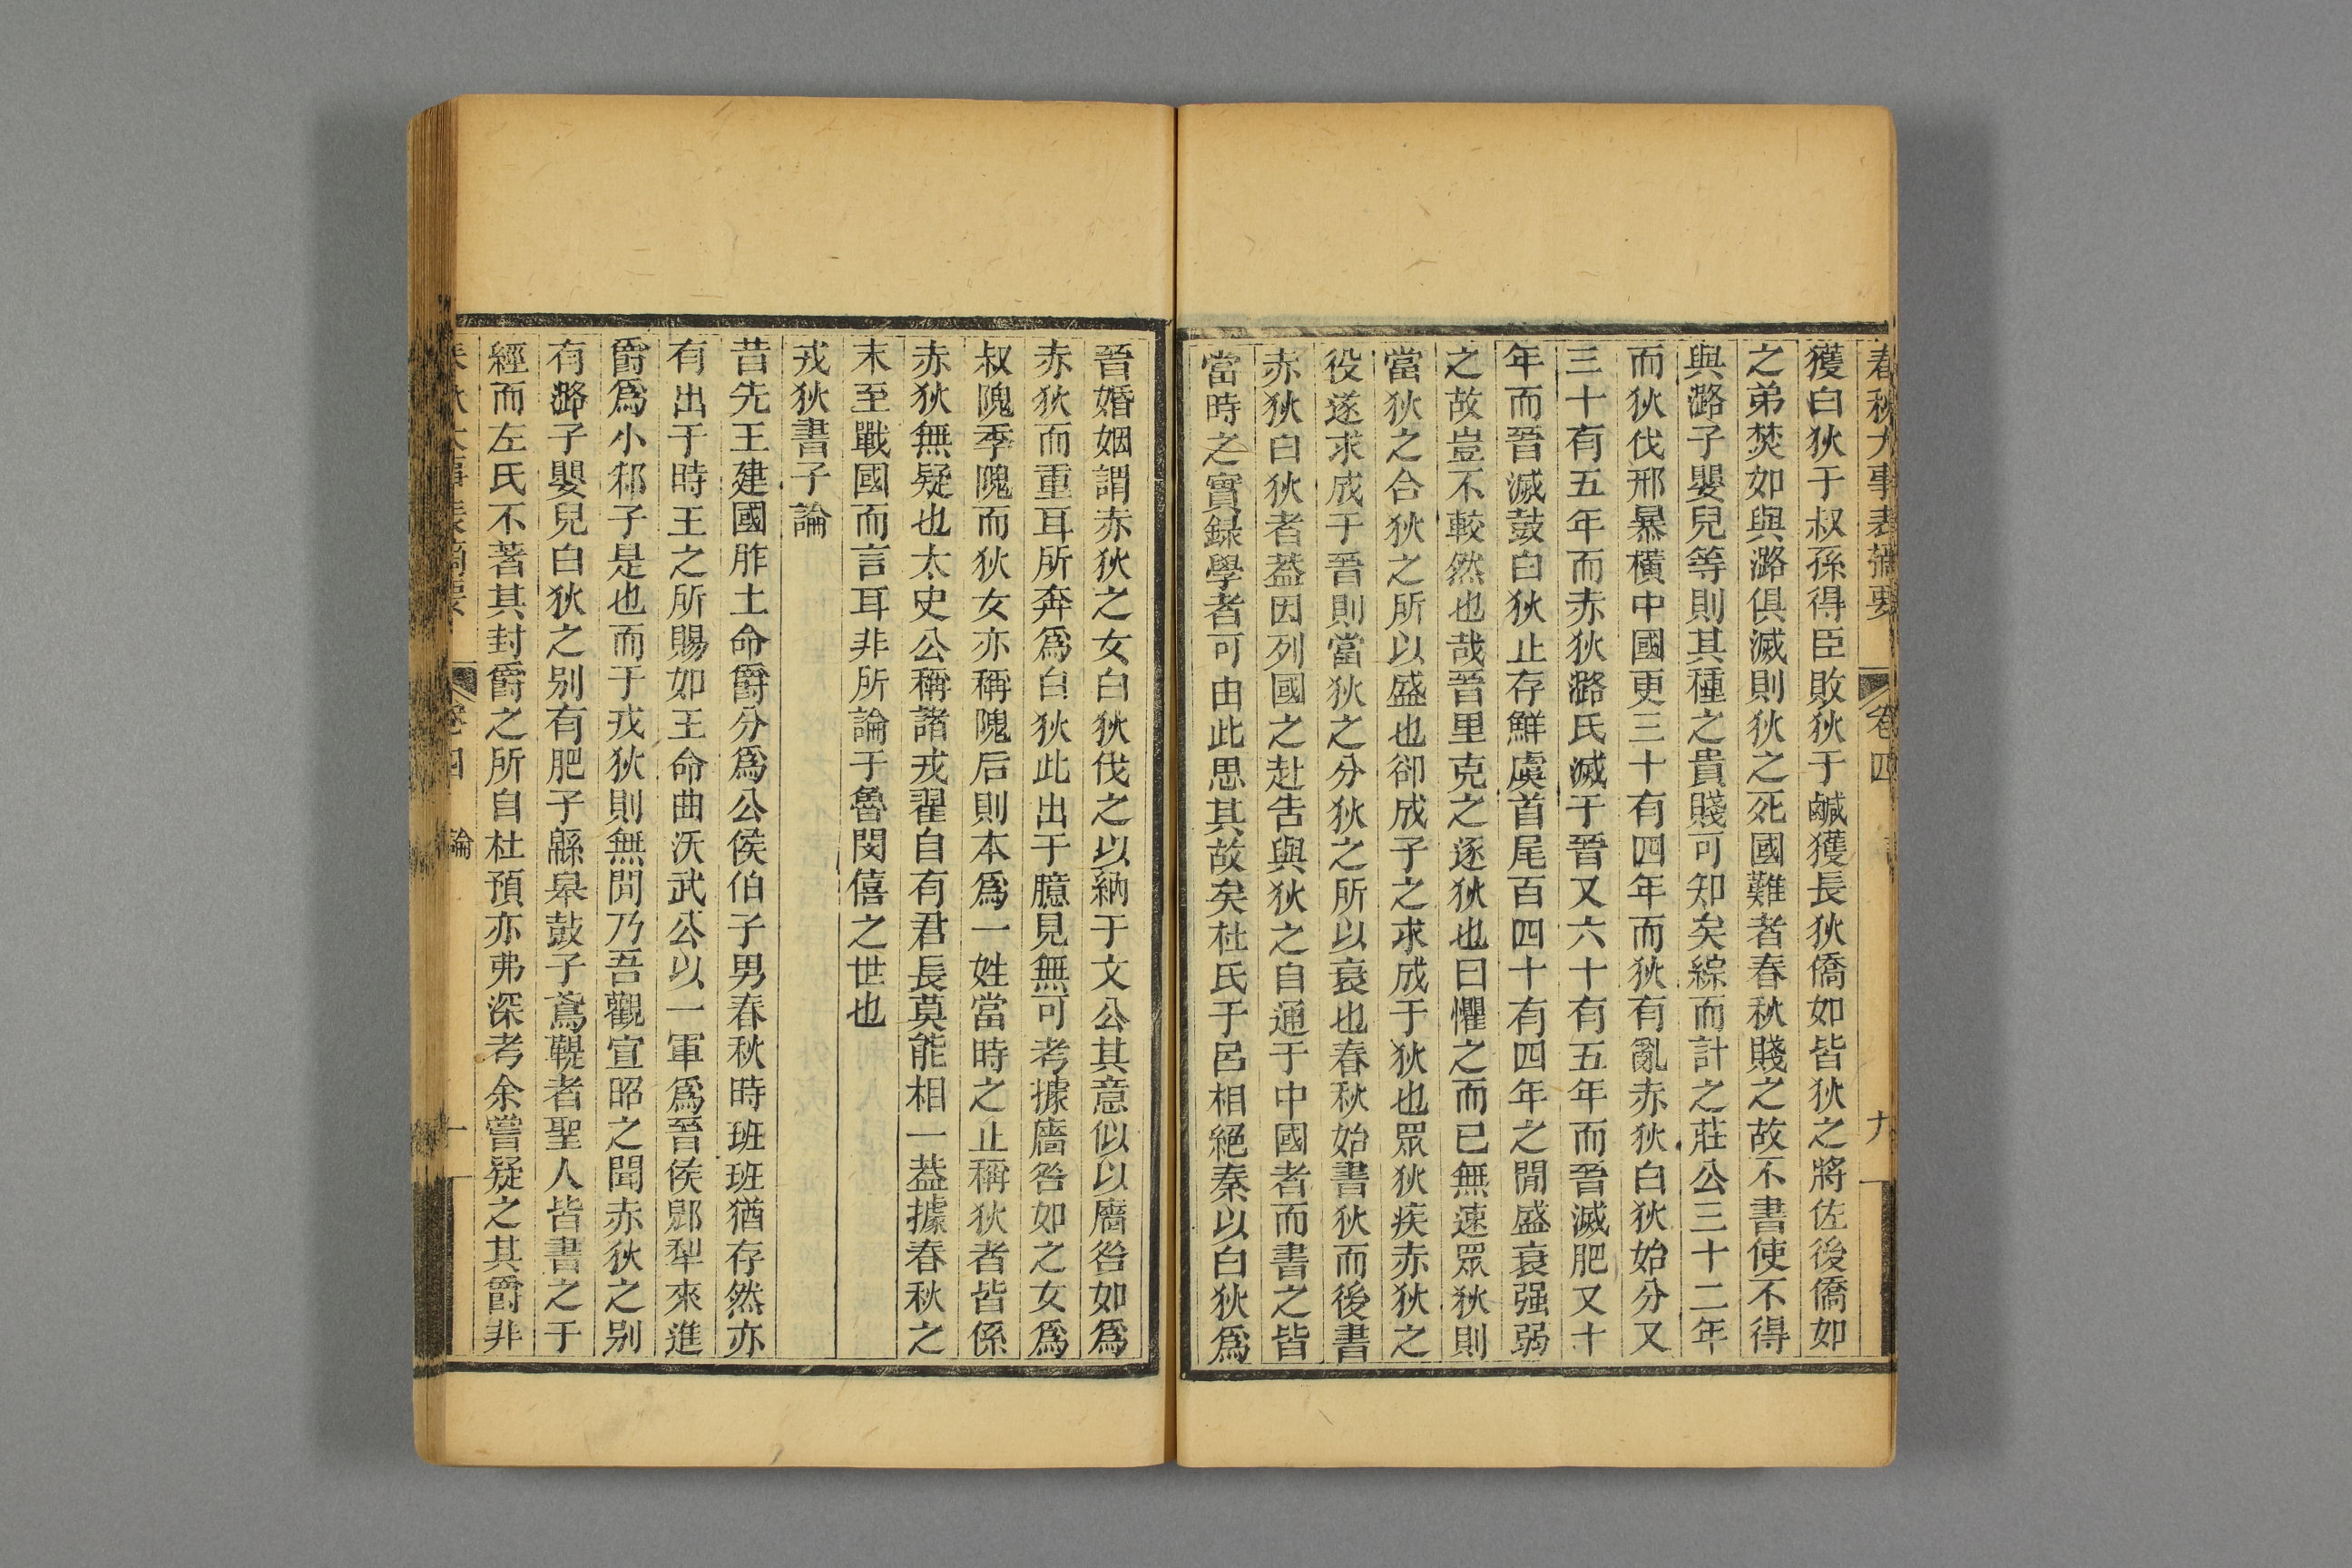 春秋大事表摘要 卷四 九
獲白狄于叔孫得臣敗狄于鹹獲長狄僑如皆狄之將佐後僑如
之弟焚如與潞俱滅則狄之死國難者春秋賤之故不書使不得
與潞子嬰兒等則其種之貴賤可知矣綜而計之莊公三十二年
而狄伐邢暴橫中國更三十有四年而狄有亂赤狄白狄始分又
三十有五年而赤狄潞氏滅于晉又六十有五年而晉滅肥又十
年而晉滅鼓白狄止存鮮虞首尾百四十有四年之閒盛衰强弱
之故豈不較然也哉晉里克之逐狄也曰懼之而已無速眾狄則
當狄之合狄之所以盛也卻成子之求成于狄也眾狄疾赤狄之
役遂求成于晉則當狄之分狄之所以衰也春秋始書狄而後書
赤狄白狄者葢因列國之赴告與狄之自通于中國者而書之皆
當時之實録學者可由此思其故矣杜氏于呂相絕秦以白狄爲
晉婚姻謂赤狄之女白狄伐之以納于文公其意似以廧咎如爲
赤狄而重耳所奔爲白狄此出于臆見無可考據廧咎如之女爲
叔隗季隗而狄女亦稱隗后則本爲一姓當時之止稱狄者皆係
赤狄無疑也太史公稱諸戎翟自有君長莫能相一葢據春秋之
末至戰國而言耳非所論于魯閔僖之世也
戎狄書子論
昔先王建國胙土命爵分爲公侯伯子男春秋時班班猶存然亦
有出于時王之所賜如王命曲沃武公以一軍爲晉侯郳犁來進
爵爲小邾子是也而于戎狄則無聞乃吾觀宣昭之聞赤狄之別
有潞子嬰兒白狄之別有肥子緜皋鼓子鳶鞮者聖人皆書之于
經而左氏不著其封爵之所自杜預亦弗深考余嘗疑之其爵非
卷四 論